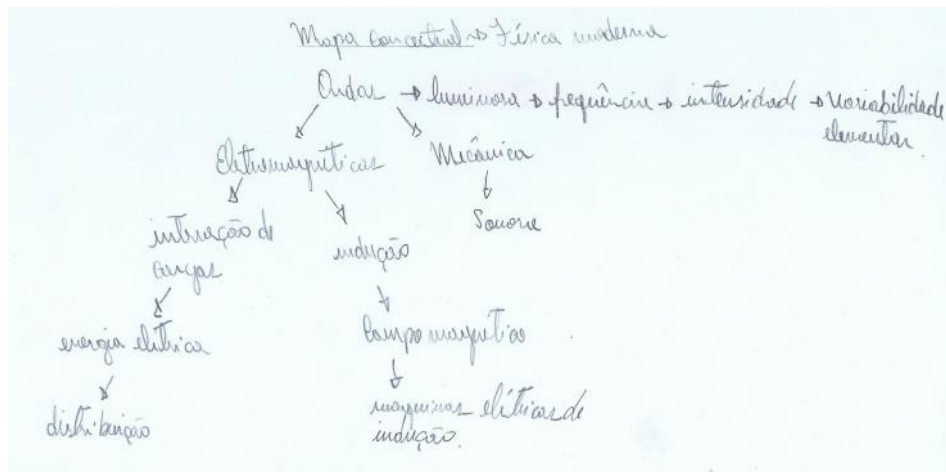 Mapa conceitual → Física moderna
Ondas → luminosa → frequência → intensidade → variabilidade
elementar.
Eletromagnéticas
Mecânica
interação de
cargas
indução
Sonora
energia elétrica
Campo magnético
distribuição
maquinas elétricas de
indução.